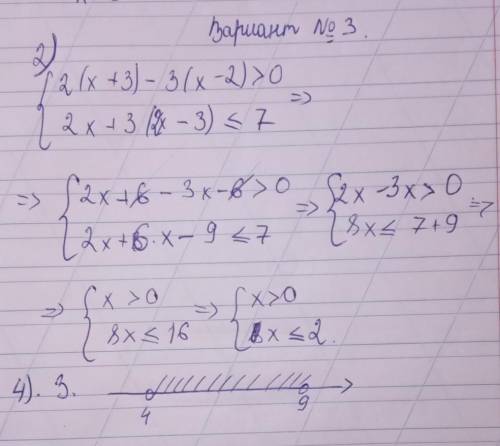 Вариант № 3.
2)
{ 2(x + 3) - 3(x - 2) > 0
{ 2x + 3(2x - 3) ≤ 7 =>
=> { 2x + 6 - 3x - 6 > 0 => { 2x - 3x > 0 =>
{ 2x + 6·x - 9 ≤ 7 { 8x ≤ 7+9
=> { x > 0 => { x > 0
{ 8x ≤ 16 { x ≤ 2.
4). 3.
4 9